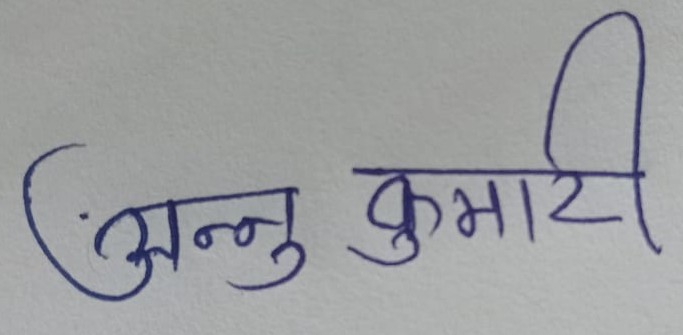 अन्नु कुमारी